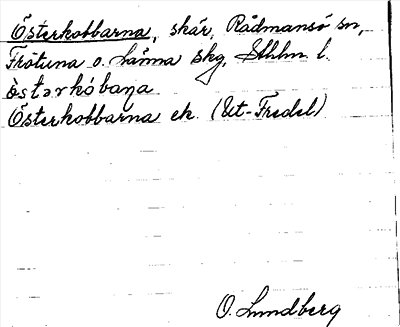 Österkobbarna, skär, Rådmansö sn,
Frötuna o. Länna skg, Sthlm l.
östərkóbaṇa
Österkobbarna ek. (Ut-Fredel)
O. Lundberg